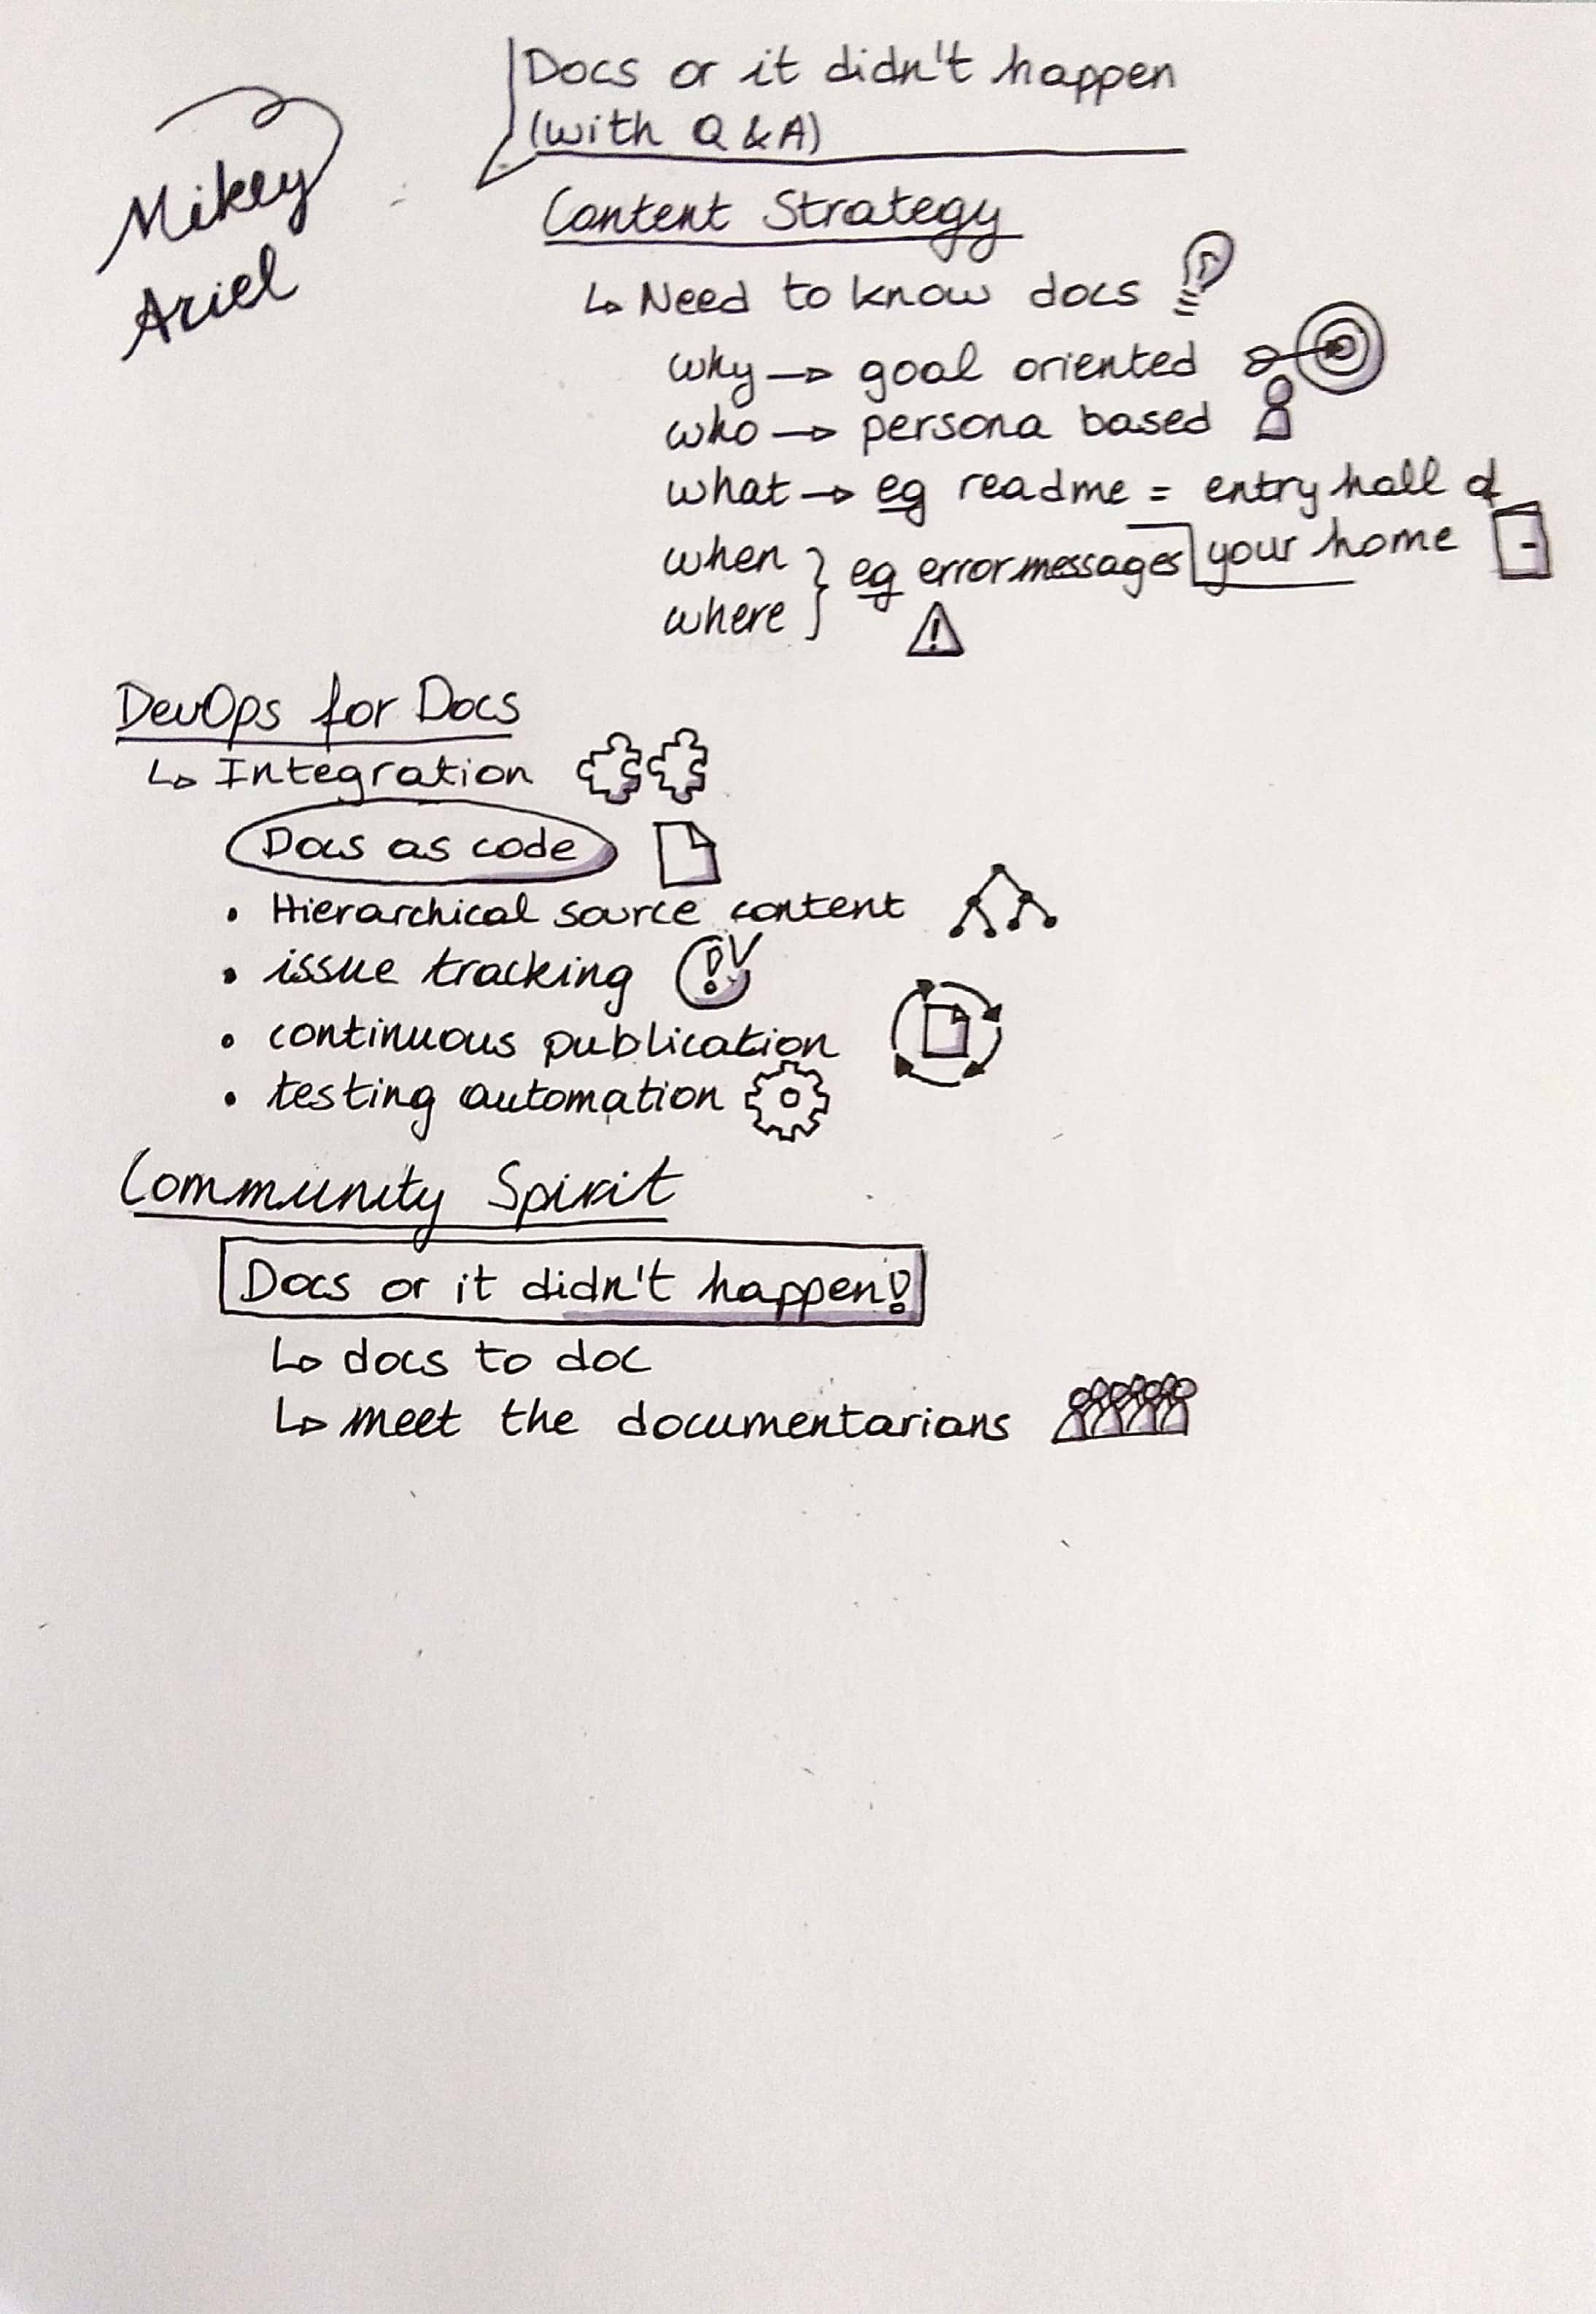 Docs or it didn't happen
(with Q & A)
Mikey
Ariel
Content Strategy
↳ Need to know docs
why → goal oriented
who → persona based
what → eg readme = entry hall of
your home
when } eg error messages
where
DevOps for Docs
↳ Integration
Docs as code
• Hierarchical source content
• issue tracking
• continuous publication
• testing automation
Community Spirit
Docs or it didn't happen!
↳ docs to doc
↳ meet the documentarians